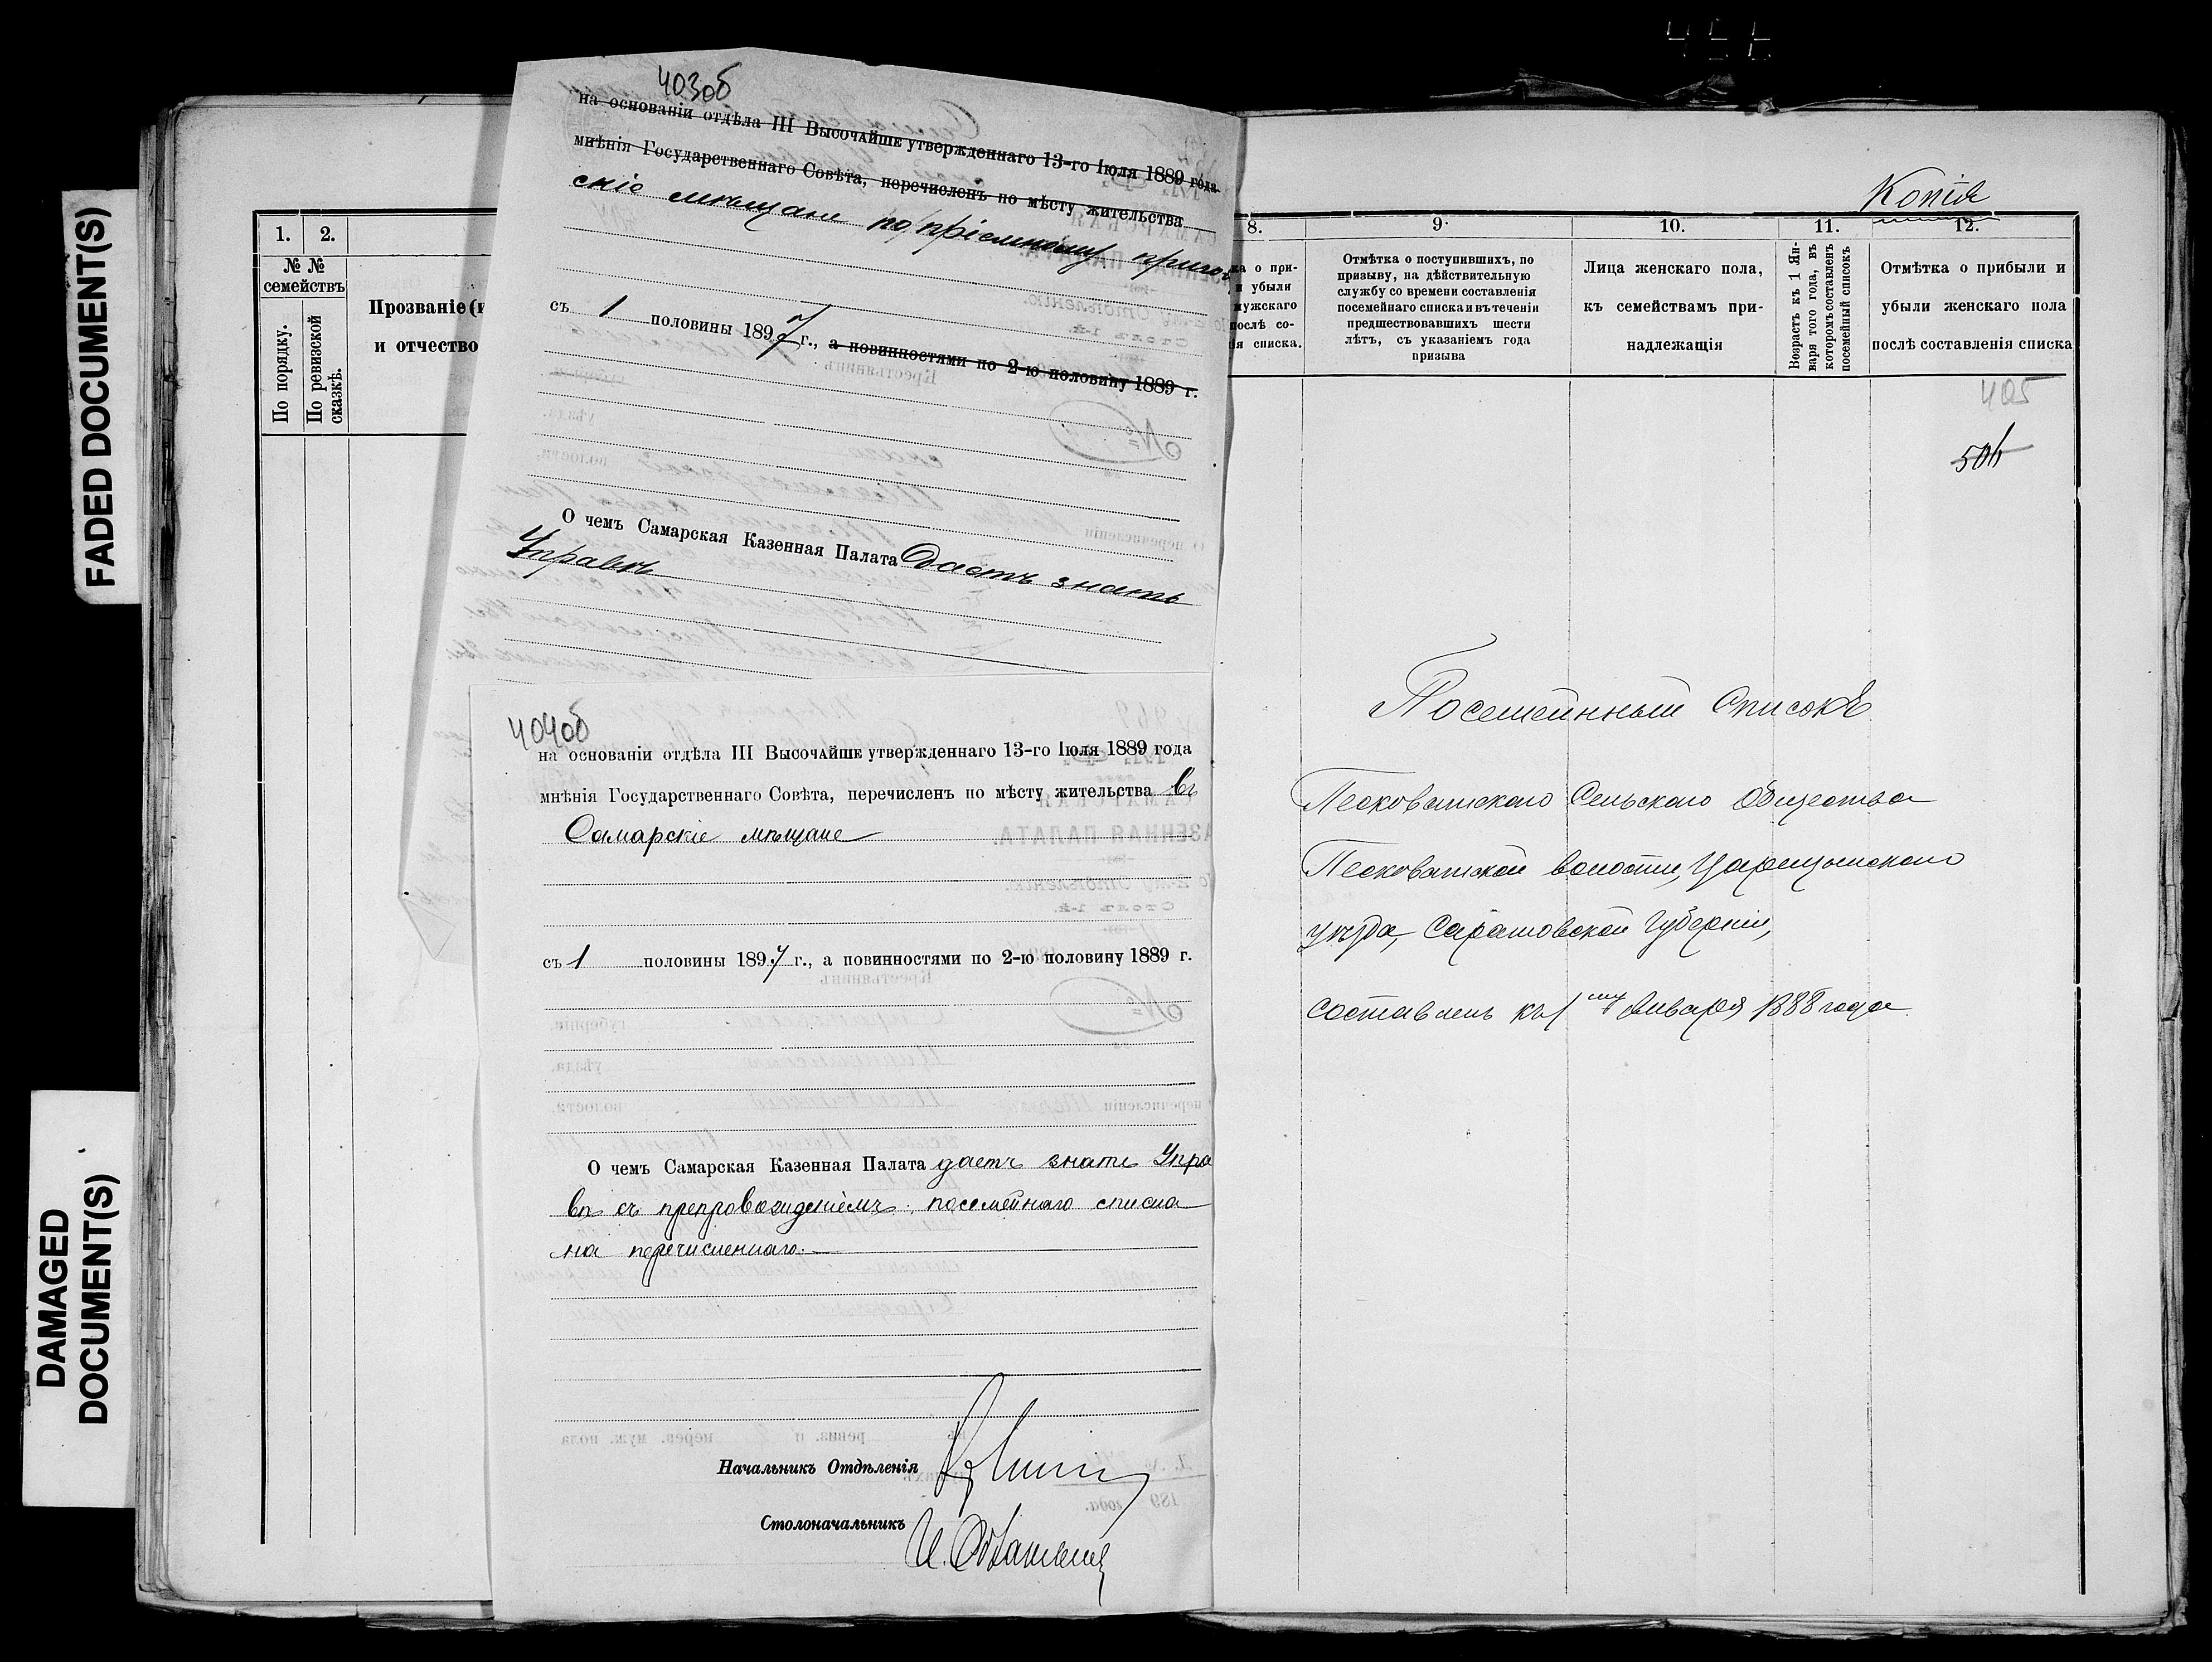 FADED DOCUMENT(S)
DAMAGED
DOCUMENT(S)
1. 2.
№ №
семействъ
По порядку.
По ревизской
сказкѣ.
Прозваніе
и отчество
403об
на основаніи отдѣла III Высочайше утвержденнаго 13-го Іюля 1889 года
мнѣнія Государственнаго Совѣта, перечисленъ по мѣсту жительства
скіе мѣщане по пріемному
съ 1 половины 1897 г., а повинностями по 2-ю половину 1889 г.
О чемъ Самарская Казенная Палата даетъ знать
Управѣ
404об
на основаніи отдѣла III Высочайше утвержденнаго 13-го Іюля 1889 года
мнѣнія Государственнаго Совѣта, перечисленъ по мѣсту жительства въ
Самарскіе мѣщане
съ 1 половины 1897 г., а повинностями по 2-ю половину 1889 г.
О чемъ Самарская Казенная Палата даетъ знать Упра
вѣ съ препровожденіемъ посемейнаго списка
на перечисленнаго.
Начальникъ Отдѣленія
Столоначальникъ
Копія
8.
9.
10.
11.
12.
а о при-
убыли
мужскаго
послѣ со-
ія списка.
Отмѣтка о поступившихъ, по
призыву, на дѣйствительную
службу со времени составленія
посемейнаго списка и въ теченіи
предшествовавшихъ шести
лѣтъ, съ указаніемъ года
призыва
Лица женскаго пола,
къ семействамъ при-
надлежащія
Возрастъ къ 1 Ян-
варя того года, въ
которомъ составленъ
посемейный списокъ
Отмѣтка о прибыли и
убыли женскаго пола
послѣ составленія списка
405
506
Посемейный Списокъ
Песковатскаго Сельскаго Общества
Песковатской волости, Царицынскаго
уѣзда, Саратовской Губерніи,
составленъ къ 1му Января 1888 года